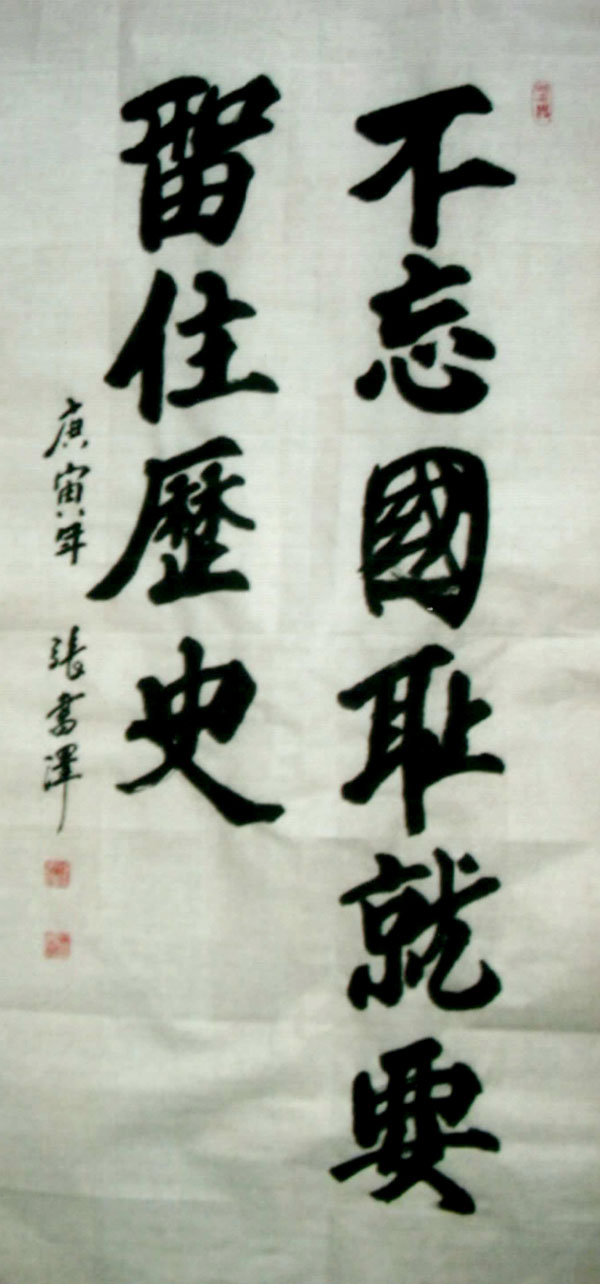 不忘國耻就要
留住歷史
庚寅年 張書澤